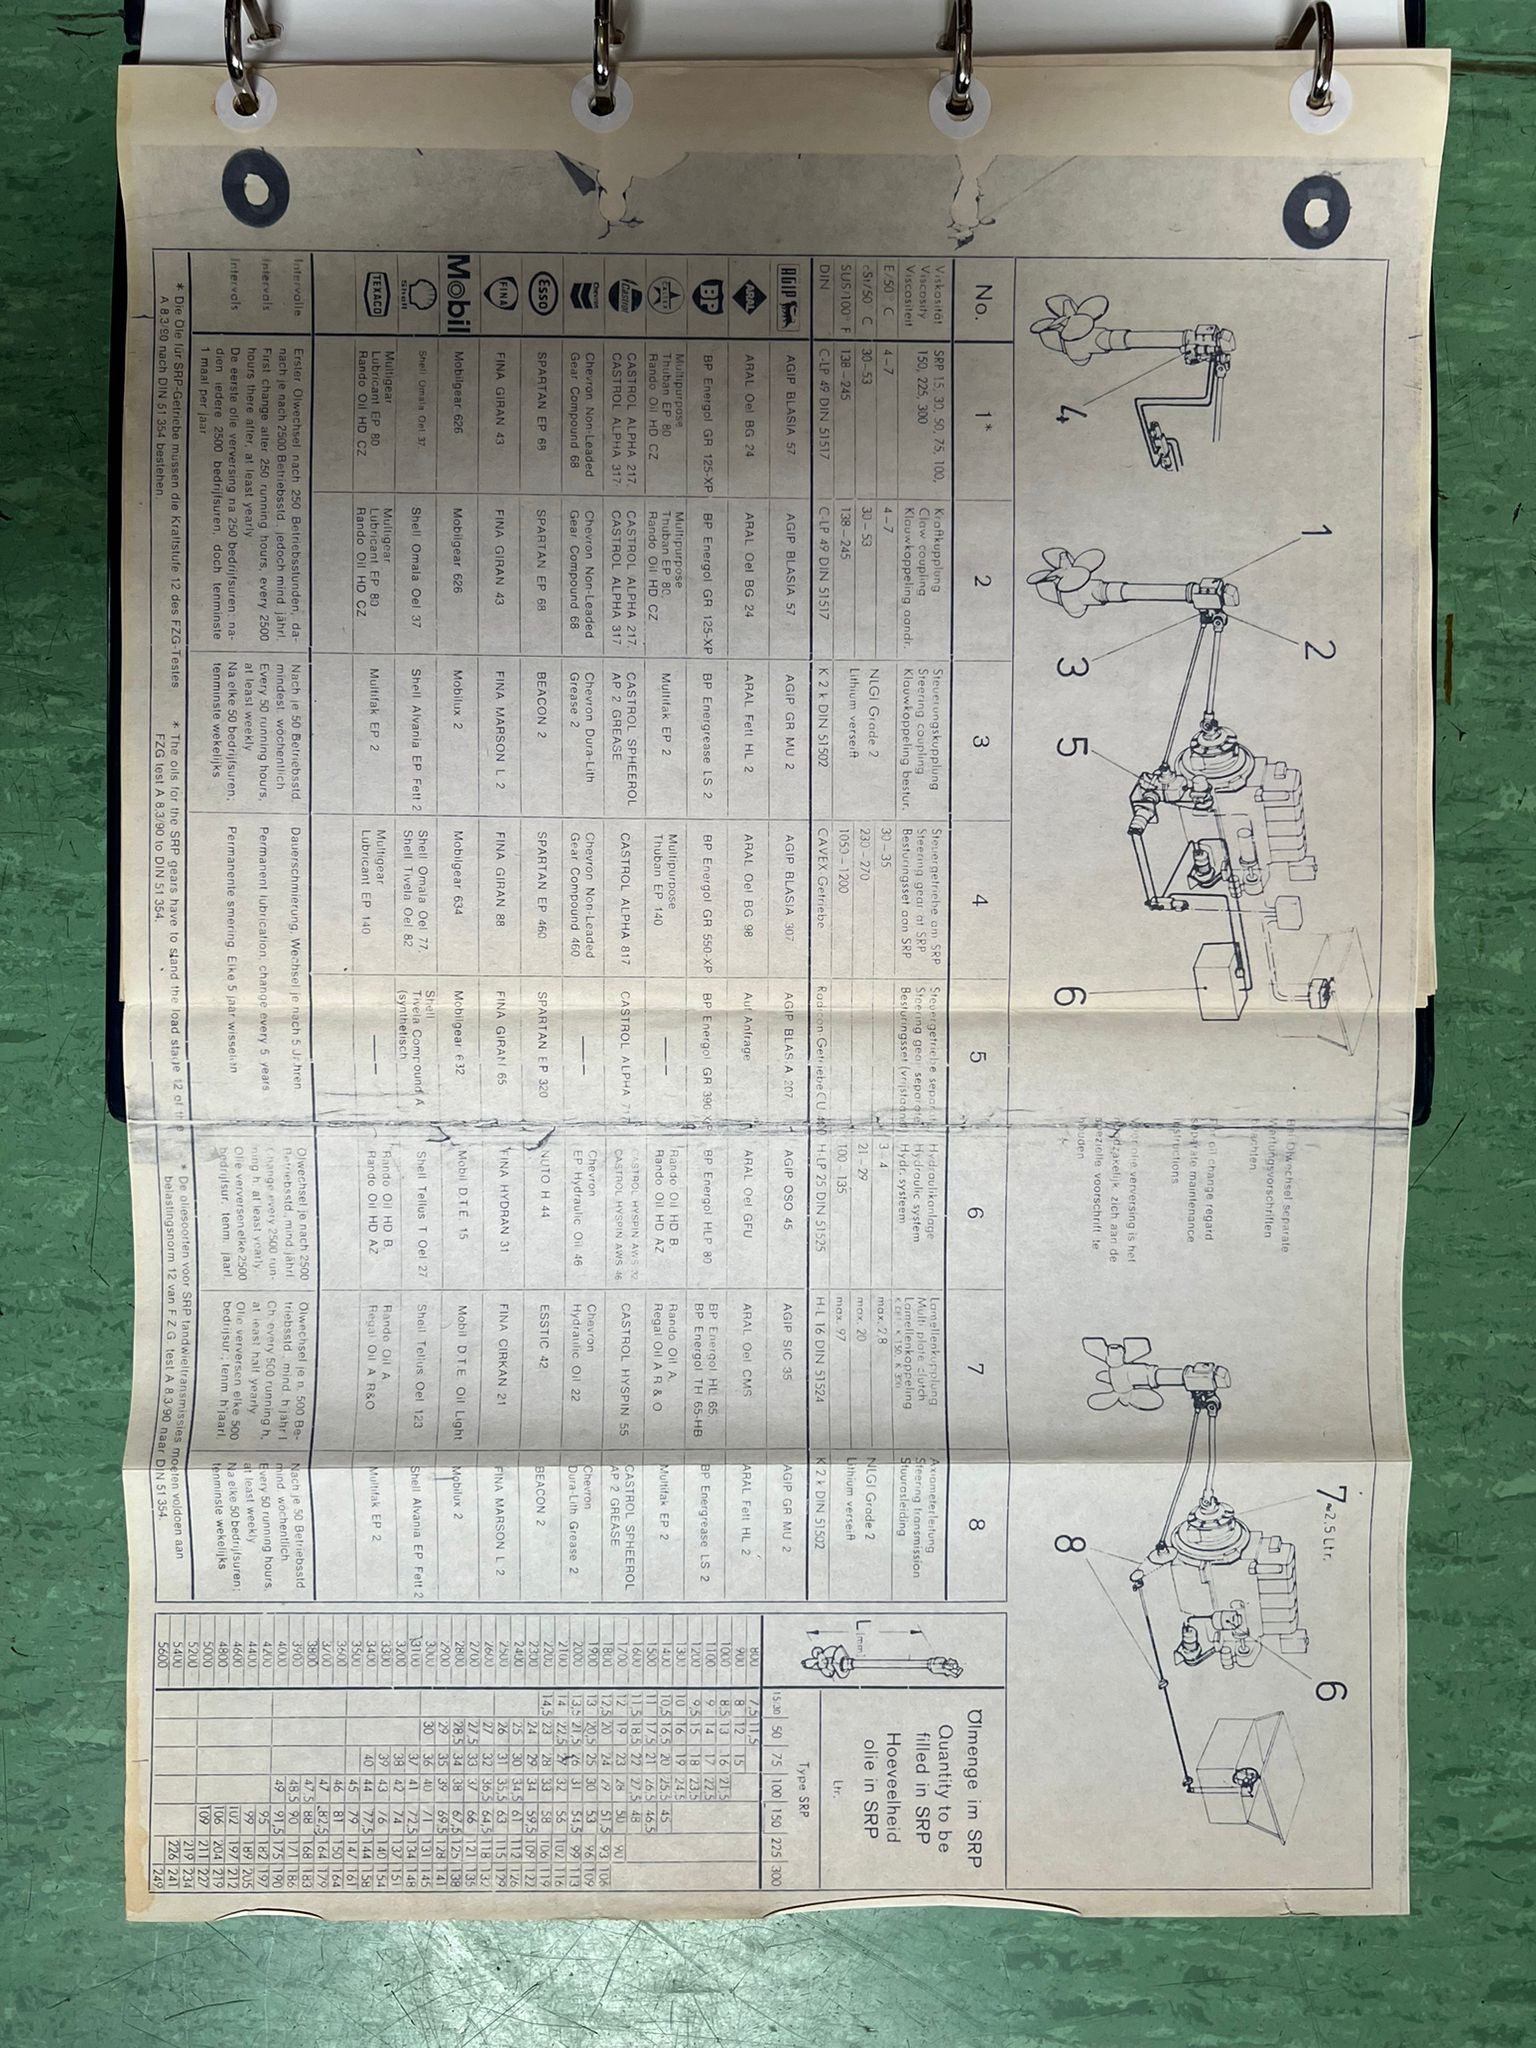 4
1
2
3
5
6
7≈2,5 Ltr.
8
6
Ölwechsel separate
Wartungsvorschriften
oil change regard
separate maintenance
instructions
No.
1*
2
3
4
5
6
7
8
Viskosität
Viscosity
Viscositeit
SRP 15, 30, 50, 75, 100,
150, 225, 300
Kraftkupplung
Claw coupling
Klauwkoppeling aandr.
Steuerungskupplung
Steering coupling
Klauwkoppeling bestur.
Steuergetriebe am SRP
Steering gear at SRP
Besturingsset aan SRP
Steuergetriebe separat
Steering gear separate
Besturingsset (vrijstaand)
Hydraulikanlage
Hydraulic system
Hydr. systeem
Lamellenkupplung
Multi plate clutch
Lamellenkoppeling
Axiometerleitung
Steering transmission
Stuurasleiding
E/50° C
4–7
4–7
NLGI Grade 2
30–35
3–4
max. 2,8
NLGI Grade 2
cSt/50° C
30–53
30–53
Lithium verseift
230–270
21–29
max. 20
Lithium verseift
SUS/100° F
138–245
138–245
1050–1200
100–135
max. 97
DIN
C-LP 49 DIN 51517
C-LP 49 DIN 51517
K 2 k DIN 51502
CAVEX-Getriebe
Radicon-Getriebe CU 400
H-LP 25 DIN 51525
H-L 16 DIN 51524
K 2 k DIN 51502
AGIP
AGIP BLASIA 57
AGIP BLASIA 57
AGIP GR MU 2
AGIP BLASIA 307
AGIP BLASIA 207
AGIP OSO 45
AGIP SIC 35
AGIP GR MU 2
ARAL
ARAL Oel BG 24
ARAL Oel BG 24
ARAL Fett HL 2
ARAL Oel BG 98
Auf Anfrage
ARAL Oel GFU
ARAL Oel CMS
ARAL Fett HL 2
BP
BP Energol GR 125-XP
BP Energol GR 125-XP
BP Energrease LS 2
BP Energol GR 550-XP
BP Energol GR 390-XP
BP Energol HLP 80
BP Energol HL 65,
BP Energol TH 65-HB
BP Energrease LS 2
CALTEX
Multipurpose
Thuban EP 80
Rando Oil HD CZ
Multipurpose
Thuban EP 80,
Rando Oil HD CZ
Multifak EP 2
Multipurpose
Thuban EP 140
——
Rando Oil HD B
Rando Oil HD AZ
Rando Oil A,
Regal Oil A R & O
Multifak EP 2
Castrol
CASTROL ALPHA 217,
CASTROL ALPHA 317
CASTROL ALPHA 217,
CASTROL ALPHA 317
CASTROL SPHEEROL
AP 2 GREASE
CASTROL ALPHA 817
CASTROL ALPHA 717
CASTROL HYSPIN AWS 32
CASTROL HYSPIN AWS 46
CASTROL HYSPIN 55
CASTROL SPHEEROL
AP 2 GREASE
Chevron
Chevron Non-Leaded
Gear Compound 68
Chevron Non-Leaded
Gear Compound 68
Chevron Dura-Lith
Grease 2
Chevron Non-Leaded
Gear Compound 460
——
Chevron
EP Hydraulic Oil 46
Chevron
Hydraulic Oil 22
Chevron
Dura-Lith Grease 2
Esso
SPARTAN EP 68
SPARTAN EP 68
BEACON 2
SPARTAN EP 460
SPARTAN EP 320
NUTO H 44
ESSTIC 42
BEACON 2
FINA
FINA GIRAN 43
FINA GIRAN 43
FINA MARSON L 2
FINA GIRAN 88
FINA GIRAN 65
FINA HYDRAN 31
FINA CIRKAN 21
FINA MARSON L 2
Mobil
Mobilgear 626
Mobilgear 626
Mobilux 2
Mobilgear 634
Mobilgear 632
Mobil D.T.E. 15
Mobil D T E Oil Light
Mobilux 2
Shell
Shell Omala Oel 37
Shell Omala Oel 37
Shell Alvania EP Fett 2
Shell Omala Oel 77,
Shell Tivela Oel 82
Shell
Tivela Compound A
(synthetisch
Shell Tellus T Oel 27
Shell Tellus Oel 123
Shell Alvania EP Fett 2
TEXACO
Multigear
Lubricant EP 80
Rando Oil HD CZ
Multigear
Lubricant EP 80,
Rando Oil HD CZ
Multifak EP 2
Multigear
Lubricant EP 140
——
Rando Oil HD B
Rando Oil HD AZ
Rando Oil A
Regal Oil A R&O
Multifak EP 2
Intervalle
Intervals
Intervals
Erster Ölwechsel nach 250 Betriebsstunden, da-
nach je nach 2500 Betriebsstd., jedoch mind. jährl.
First change after 250 running hours, every 2500
hours there after, at least yearly
De eerste olie verversing na 250 bedrijfsuren na-
dien iedere 2500 bedrijfsuren, doch tenminste
1 maal per jaar
Nach je 50 Betriebsstd.
mindest. wöchentlich
Every 50 running hours,
at least weekly
Na elke 50 bedrijfsuren;
tenminste wekelijks
Dauerschmierung, Wechsel je nach 5 Jahren
Permanent lubrication, change every 5 years
Permanente smering. Elke 5 jaar wisselen
Olwechsel je nach 2500
Betriebsstd., mind. jährl
Change every 2500 run-
ning h. at least yearly
Olie verversen elke 2500
bedrijfsur, tenm. jaarl.
Olwechsel je n. 500 Be-
triebsstd., mind. h.jährl
Ch. every 500 running h,
at least half yearly
Olie verversen elke 500
bedrijsur.; tenm h'jaarl
Nach je 50 Betriebsstd.
mind. wöchentlich
Every 50 running hours,
at least weekly
Na elke 50 bedrijfsuren;
tenminste wekelijks
* Die Öle für SRP-Getriebe müssen die Kraftstufe 12 des FZG-Testes
A 8.3/90 nach DIN 51 354 bestehen.
* The oils for the SRP gears have to stand the load stage 12 of the
FZG test A 8,3/90 to DIN 51 354.
* De oliesoorten voor SRP tandwieltransmissies moeten voldoen aan
belastingsnorm 12 van F.Z.G. test A 8,3/90 naar DIN 51 354.
L (mm)
Ölmenge im SRP
Quantity to be
filled in SRP
Hoeveelheid
olie in SRP
Ltr.
Type SRP
15:30 50 75 100 150 225 300
800 7,5 11,5
900 8 12 15
1000 8,5 13 16 21,5
1100 9 14 17 22,5
1200 9,5 15 18 23,5
1300 10 16 19 24,5
1400 10,5 16,5 20 25,5 45
1500 11 17,5 21 26,5 46,5
1600 11,5 18,5 22 27,5 48
1700 12 19 23 28 50 90
1800 12,5 20 24 29 51,5 93 106
1900 13 20,5 25 30 53 96 109
2000 13,5 21,5 26 31 54,5 99 113
2100 14 22,5 27 32 56 102 116
2200 14,5 23 28 33 58 106 119
2300 24 29 34 59,5 109 122
2400 25 30 34,5 61 112 126
2500 26 31 35,5 63 115 129
2600 27 32 36,5 64,5 118 132
2700 27,5 33 37 66 121 135
2800 28,5 34 38 67,5 125 138
2900 29 35 39 69,5 128 141
3000 30 36 40 71 131 145
3100 37 41 72,5 134 148
3200 38 42 74 137 151
3300 39 43 76 140 154
3400 40 44 77,5 144 158
3500 45 79 147 161
3600 46 81 150 164
3700 47 82,5 164 179
3800 47,5 88 168 183
3900 48,5 90 171 186
4000 49 91,5 175 190
4200 95 182 197
4400 99 189 205
4600 102 197 212
4800 106 204 219
5000 109 211 227
5200 219 234
5400 226 241
5600 249